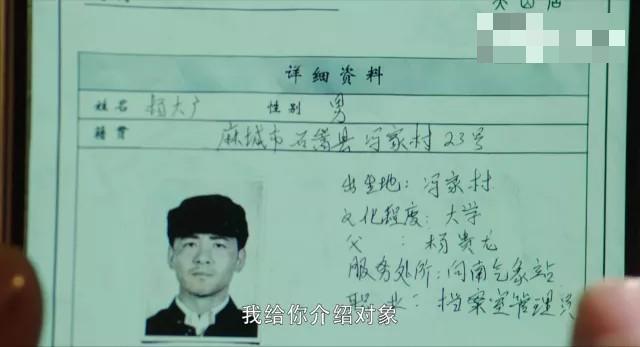 详细资料
姓名 杨大广 性别 男
籍贯 麻城市石嵩县冯家村23号
出生地:冯家村
文化程度:大学
父:杨贵龙
服务处所:向南气象站
职业:档案室管理员
我给你介绍对象